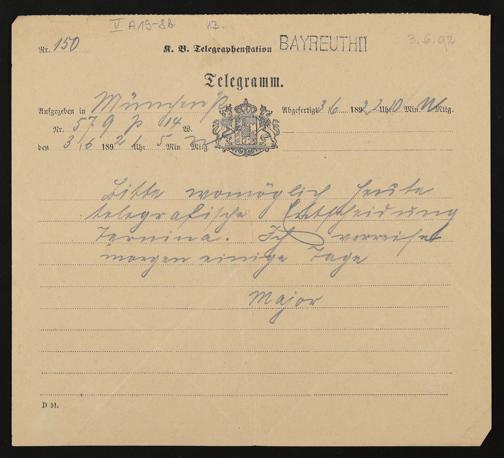 V A 19-8b 12.
Nr. 150 K. B. Telegraphenstation BAYREUTH II 3.6.92
Telegramm.
Aufgegeben in München Abgefertigt 3/6 1892 2 Uhr 10 Min. Mitg.
Nr. 579 P 14 W.
den 3/6 1892 1 Uhr 5 Min Mitg
Bitte womöglich heute
telegrafische Entscheidung
Ternina. Ich verreise
morgen einige Tage
Major
D 51.